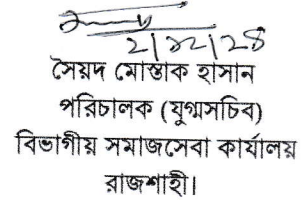 ২/১২/২৪
সৈয়দ মোস্তাক হাসান
পরিচালক (যুগ্মসচিব)
বিভাগীয় সমাজসেবা কার্যালয়
রাজশাহী।